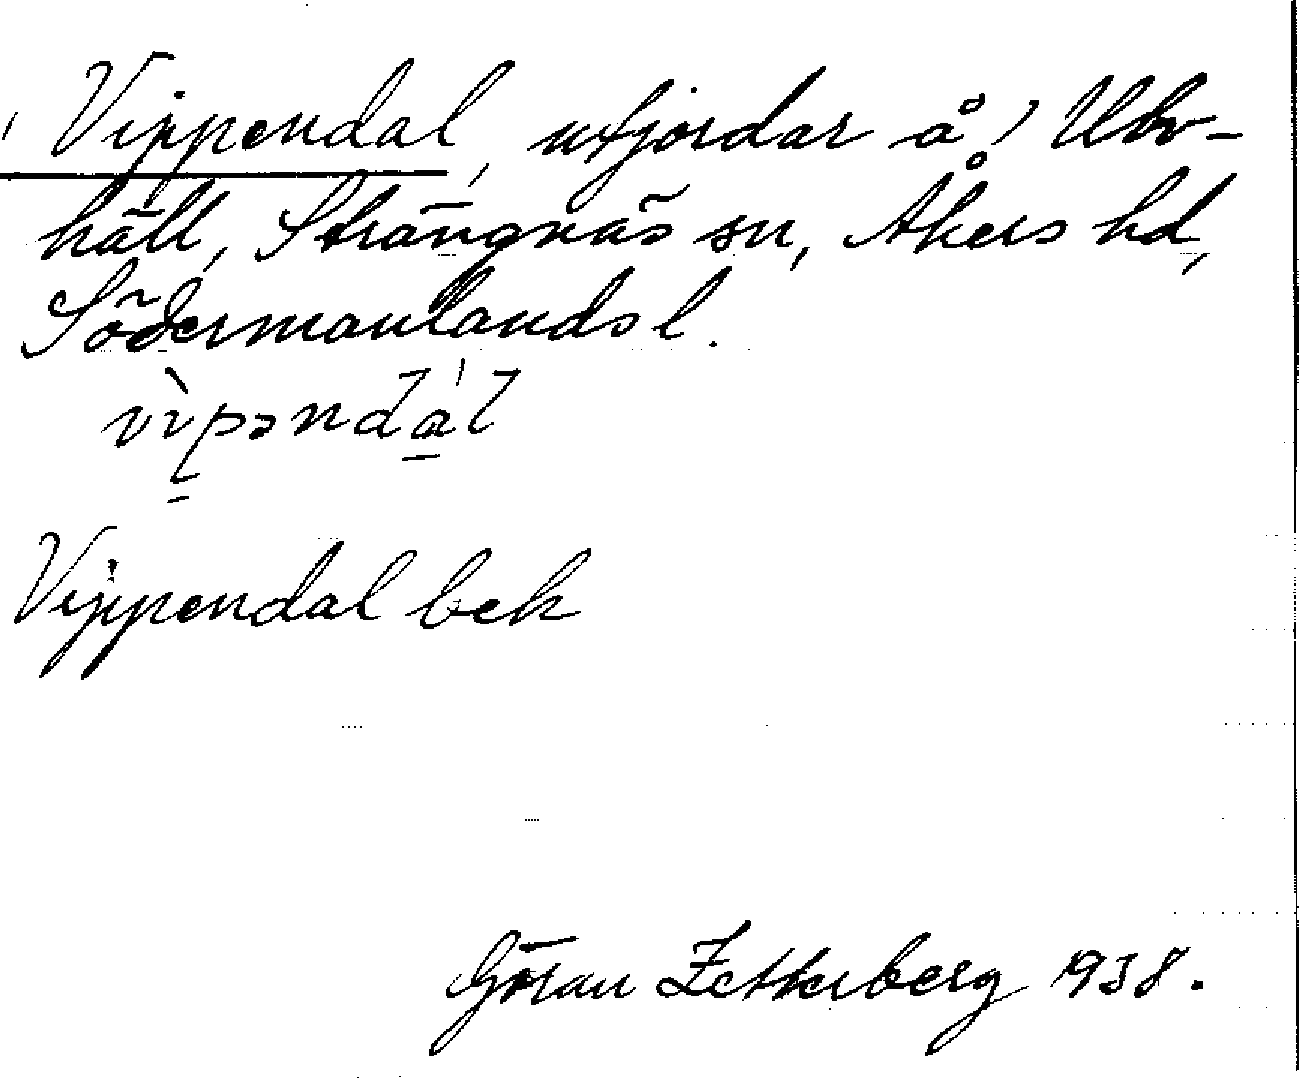 Vippendal, utjordar å) Ulv-
häll, Strängnäs sn, Åkers hd,
Södermanlands l.
vìpəndál
Vippendal bek
Göran Zetterberg 1938.